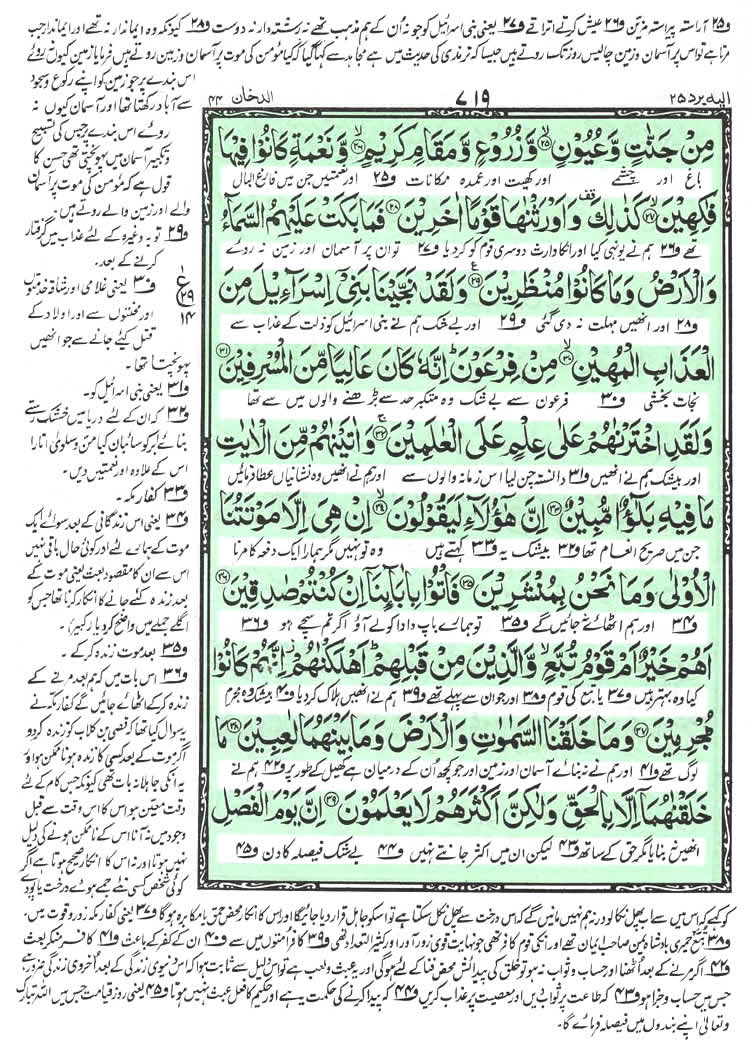 و۲۵ آراستہ پیراستہ مزین و۲۶ عیش کرتے اتراتے و۲۷ یعنی بنی اسرائیل کو جو نہ ان کے ہم مذہب تھے نہ رشتہ دار نہ دوست و۲۸ کیونکہ وہ ایماندار نہ تھے اور ایماندار جب
مرتا ہے تو اس پر آسمان و زمین چالیس روز تک روتے ہیں جیسا کہ ترمذی کی حدیث میں ہے مجاہد سے کہا گیا کہ کیا مومن کی موت پر آسمان و زمین روتے ہیں فرمایا زمین کیوں نہ روئے
اس بندے پر جو زمین کو اپنے رکوع و سجود
سے آباد رکھتا تھا اور آسمان کیوں نہ
روئے اس بندے پر جس کی تسبیح
و تکبیر آسمان میں پہونچتی تھی حسن کا
قول ہے کہ مومن کی موت پر آسمان
والے اور زمین والے روتے ہیں۔
و۲۹ توبہ وغیرہ کے لئے عذاب میں گرفتار
کرنے کے بعد۔
و۳۰ یعنی غلامی اور شاقہ خدمتوں
اور محنتوں سے اور اولاد کے
قتل کئے جانے سے جو انھیں
پہونچتا تھا۔
و۳۱ یعنی بنی اسرائیل کو۔
و۳۲ کہ ان کے لئے دریا میں خشک رستے
بنائے ابر کو سائبان کیا من و سلویٰ اتارا
اس کے علاوہ اور نعمتیں دیں۔
و۳۳ کفار مکہ۔
و۳۴ یعنی اس زندگانی کے بعد سوائے ایک
موت کے ہمارے لئے اور کوئی حال باقی نہیں
اس سے ان کا مقصود بعث یعنی موت کے
بعد زندہ کئے جانے کا انکار کرنا تھا جس کو
اگلے جملے میں واضح کر دیا (کبیر)۔
و۳۵ بعد موت زندہ کرکے۔
و۳۶ اس بات میں کہ ہم بعد مرنے کے
زندہ کرکے اٹھائے جائیں گے کفار مکہ نے
یہ سوال کیا تھا کہ قصی بن کلاب کو زندہ کر دو
اگر موت کے بعد کسی کا زندہ ہونا ممکن ہو اور
یہ انکی جاہلانہ بات تھی کیونکہ جس کام کے لئے
وقت معین ہو اس کا اس وقت سے قبل
وجود میں نہ آنا اس کے ناممکن ہونے کی دلیل
نہیں ہوتا اور نہ اس کا انکار صحیح ہوتا ہے اگر
کوئی شخص کسی نئے جمے ہوئے درخت یا پودے
ع ۲۹ ۱۴
الیہ یرد ۲۵
۷۱۹
الدخان ۴۴
مِنْ جَنّٰتٍ وَّعُیُوْنٍ ﴿۲۵﴾ وَّزُرُوْعٍ وَّمَقَامٍ كَرِیْمٍ ﴿۲۶﴾ وَّنَعْمَةٍ كَانُوْا فِیْهَا
باغ اور چشمے اور کھیت اور عمدہ مکانات و۲۵ اور نعمتیں جن میں فارغ البال
فٰكِهِیْنَ ﴿۲۷﴾ كَذٰلِكَ وَاَوْرَثْنٰهَا قَوْمًا اٰخَرِیْنَ ﴿۲۸﴾ فَمَا بَكَتْ عَلَیْهِمُ السَّمَآءُ
تھے و۲۶ ہم نے یونہی کیا اور انکا وارث دوسری قوم کو کردیا و۲۷ تو ان پر آسمان اور زمین نہ روئے
وَالْاَرْضُ وَمَا كَانُوْا مُنْظَرِیْنَ ﴿۲۹﴾ وَلَقَدْ نَجَّیْنَا بَنِیْۤ اِسْرَآءِیْلَ مِنَ
و۲۸ اور انھیں مہلت نہ دی گئی و۲۹ اور بے شک ہم نے بنی اسرائیل کو ذلت کے عذاب سے
الْعَذَابِ الْمُهِیْنِ ﴿۳۰﴾ مِنْ فِرْعَوْنَ ؕ اِنَّهٗ كَانَ عَالِیًا مِّنَ الْمُسْرِفِیْنَ ﴿۳۱﴾
نجات بخشی و۳۰ فرعون سے بے شک وہ متکبر حد سے بڑھنے والوں میں سے تھا
وَلَقَدِ اخْتَرْنٰهُمْ عَلٰى عِلْمٍ عَلَى الْعٰلَمِیْنَ ﴿۳۲﴾ وَاٰتَیْنٰهُمْ مِّنَ الْاٰیٰتِ
اور بیشک ہم نے انھیں و۳۱ دانستہ چن لیا اس زمانہ والوں سے اور ہم نے انھیں وہ نشانیاں عطا فرمائیں
مَا فِیْهِ بَلٰٓؤٌا مُّبِیْنٌ ﴿۳۳﴾ اِنَّ هٰۤؤُلَآءِ لَیَقُوْلُوْنَ ﴿۳۴﴾ اِنْ هِیَ اِلَّا مَوْتَتُنَا
جن میں صریح انعام تھا و۳۲ بیشک یہ و۳۳ کہتے ہیں وہ تو نہیں مگر ہمارا ایک دفعہ کا مرنا
الْاُوْلٰى وَمَا نَحْنُ بِمُنْشَرِیْنَ ﴿۳۵﴾ فَاْتُوْا بِاٰبَآىِٕنَاۤ اِنْ كُنْتُمْ صٰدِقِیْنَ ﴿۳۶﴾
و۳۴ اور ہم اٹھائے نہ جائیں گے و۳۵ تو ہمارے باپ دادا کو لے آؤ اگر تم سچے ہو و۳۶
اَهُمْ خَیْرٌ اَمْ قَوْمُ تُبَّعٍ ۙ وَّالَّذِیْنَ مِنْ قَبْلِهِمْ ؕ اَهْلَكْنٰهُمْ ؗ اِنَّهُمْ كَانُوْا
کیا وہ بہتر ہیں و۳۷ یا تبع کی قوم و۳۸ اور جو ان سے پہلے تھے و۳۹ ہم نے انھیں ہلاک کردیا و۴۰ بیشک وہ مجرم
مُجْرِمِیْنَ ﴿۳۷﴾ وَمَا خَلَقْنَا السَّمٰوٰتِ وَالْاَرْضَ وَمَا بَیْنَهُمَا لٰعِبِیْنَ ﴿۳۸﴾ مَا
لوگ تھے و۴۱ اور ہم نے نہ بنائے آسمان اور زمین اور جو کچھ ان کے درمیان ہے کھیل کے طور پر و۴۲ ہم نے
خَلَقْنٰهُمَاۤ اِلَّا بِالْحَقِّ وَلٰكِنَّ اَكْثَرَهُمْ لَا یَعْلَمُوْنَ ﴿۳۹﴾ اِنَّ یَوْمَ الْفَصْلِ
انھیں نہ بنایا مگر حق کے ساتھ و۴۳ لیکن ان میں اکثر جانتے نہیں و۴۴ بے شک فیصلہ کا دن و۴۵
کو کہے کہ اس میں سے اب پھل نکالو ورنہ ہم نہیں مانیں گے کہ اس درخت سے پھل نکل سکتا ہے تو اسکو جاہل قرار دیا جائیگا اور اس کا انکار محض حمق یا مکابرہ ہوگا و۳۷ یعنی کفار مکہ زور و قوت میں۔
و۳۸ تبع حمیری بادشاہ یمن صاحب ایمان تھے اور انکی قوم کافر تھی جو نہایت قوی زور آور اور کثیر التعداد تھی و۳۹ کافر امتوں میں سے و۴۰ ان کے کفر کے باعث و۴۱ کافر منکر بعث
و۴۲ اگر مرنے کے بعد اٹھنا اور حساب و ثواب نہ ہو تو خلق کی پیدائش محض فنا کے لئے ہوگی اور یہ عبث و لعب ہے تو اس دلیل سے ثابت ہوا کہ اس دنیوی زندگی کے بعد اخروی زندگی ضرور ہے
جس میں حساب و جزا ہو و۴۳ کہ طاعت پر ثواب دیں اور معصیت پر عذاب کریں و۴۴ کہ پیدا کرنے کی حکمت یہ ہے اور حکیم کا فعل عبث نہیں ہوتا و۴۵ یعنی روز قیامت جس میں اللہ تبارک
و تعالیٰ اپنے بندوں میں فیصلہ فرمائے گا۔